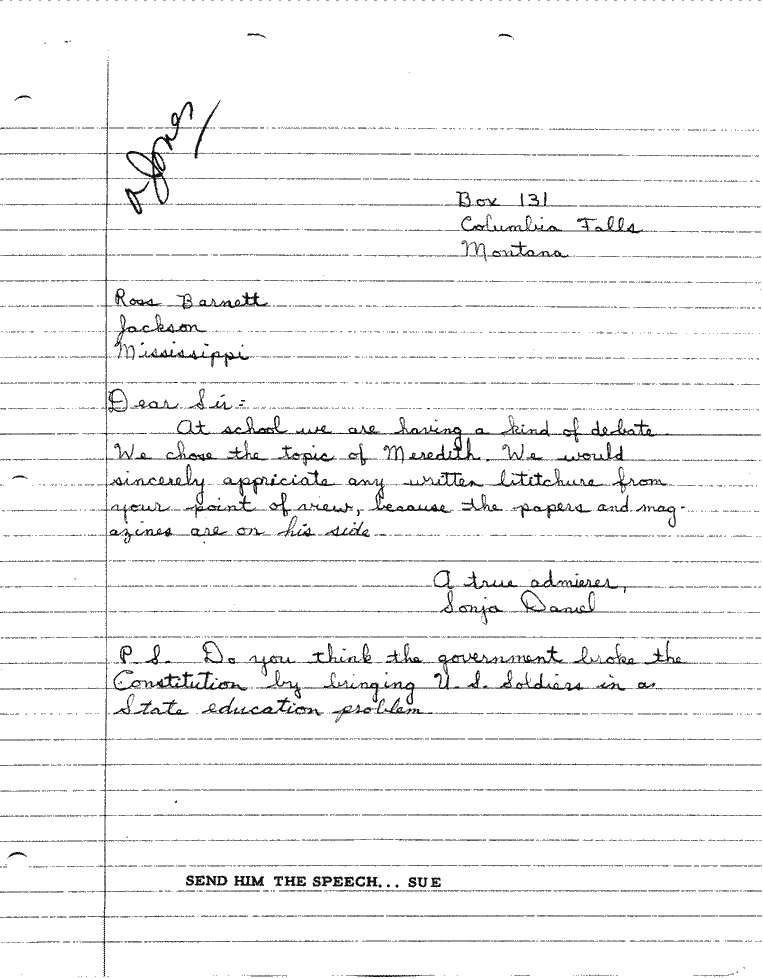 a Jones
Box 131
Columbia Falls
Montana
Ross Barnett
Jackson
Mississippi
Dear Sir:
At school we are having a kind of debate.
We chose the topic of Meredith. We would
sincerely appriciate any written lititchure from
your point of view, because the papers and mag-
azines are on his side.
A true admierer,
Sonja Daniel
P.S. Do you think the government broke the
Constitution by bringing U.S. Soldiers in a
State education problem
SEND HIM THE SPEECH... SUE